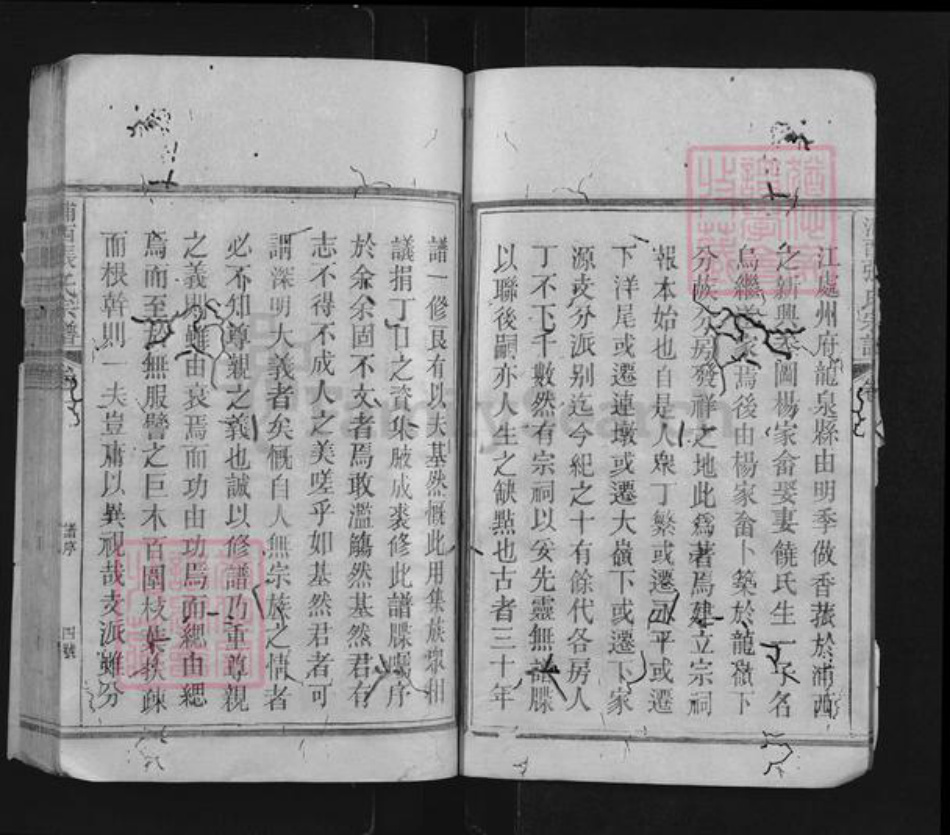 江處州府龍泉縣由明季做香蕈於浦西
之新興本圖楊家畲娶妻饒氏生一子名
烏繼 家焉後由楊家畲卜築於龍嶺下
分族分房發祥之地此爲著焉建立宗祠
報本始也自是人衆丁繁或遷 平或遷
下洋尾或遷連墩或遷大嶺下或遷下家
源支分派別迄今紀之十有餘代各房人
丁不下千數然有宗祠以妥先靈無譜牒
以聯後嗣亦人生之缺點也古者三十年
譜一修良有以夫基然慨此用集族衆相
議捐丁口之資集腋成裘修此譜牒囑序
於余余固不文者焉敢濫觴然基然君有
志不得不成人之美嗟乎如基然君者可
謂深明大義者矣慨自人無宗族之情者
必不知尊親之義也誠以修譜乃重尊親
之義則雖由衰焉而功由功焉而緦由緦
焉而至於無服譬之巨木百圍枝葉扶疎
而根幹則一夫豈庸以異視哉支派雖分
浦西張氏宗譜
譜序
四號